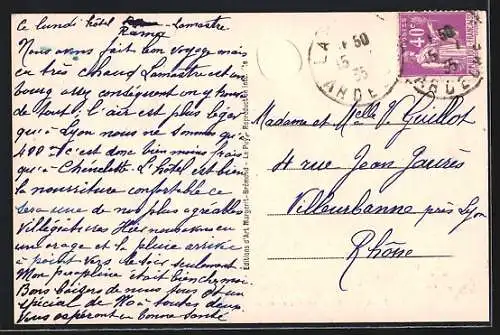 Ce lundi hôtel Ramp Lamastre
Nous avons fait bon voyage mais
très chaud Lamastre est un
bourg assez conséquent on y trouve
de tout. l'air est plus léger
qu'à Lyon nous ne sommes qu'à
400 m c'est donc bien moins frais
qu'à Chénelette. L'hôtel est bien
la nourriture confortable ce
sera une de nos plus agréables
villégiatures Hier nous avons eu
un orage et la pluie arrive
à point vers le soir seulement.
Mon était bien chez moi.
Bons baisers de nous tous et un
spécial de à toutes deux.
Vous espérant en bonne santé
Editions d'Art Margerit-Brémond - Le Puy. Reproduction
40c
50
35
LA
ARDECHE
Madame et Melle V. Guillot
4 rue Jean Jaurès
Villeurbanne près Lyon
Rhône